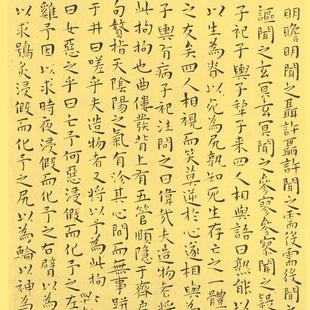 明瞻明聞之聶許聶許聞之需役需役聞
謳聞之玄冥玄冥聞之參寥參寥聞之疑
子祀子輿子犁子來四人相與語曰孰能以
以生為脊以死為尻孰知死生存亡之一體
之友矣四人相視而笑莫逆於心遂相與
子輿有病子祀往問之曰偉哉夫造物者將
此拘拘也曲僂發背上有五管頤隱于齊肩
句贅指天陰陽之氣有沴其心閒而無事跰
于井曰嗟乎夫造物者又將以予為此拘
曰女惡之乎曰亡予何惡浸假而化予之左
雞予因以求時夜浸假而化予之右臂以為
以求鴞炙浸假而化予之尻以為輪以神為